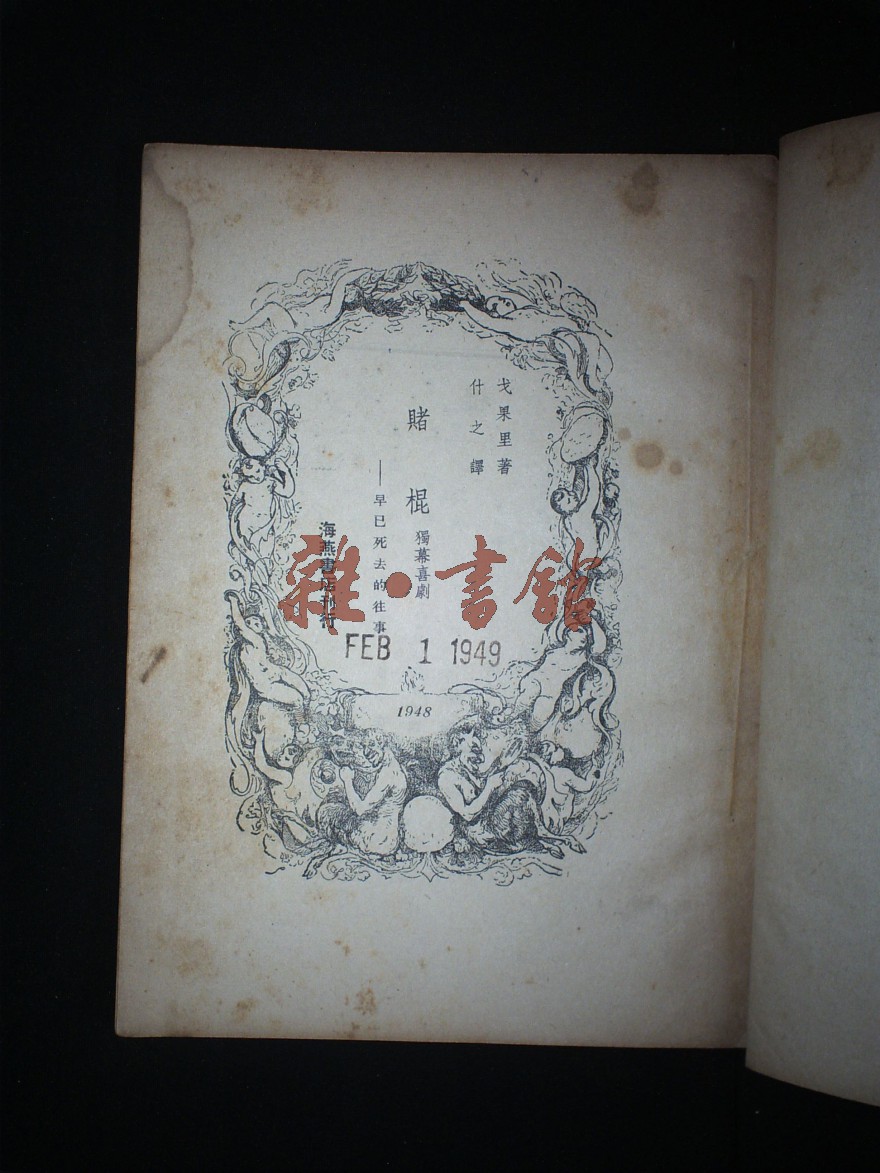 戈果里著
什之譯
賭棍
獨幕喜劇
—早已死去的往事
海燕書店刊行
雜·書館
FEB 1 1949
1948